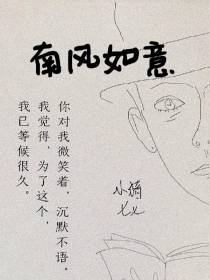 南风如意
你对我微笑着，沉默不语。
我觉得，为了这个，
我已等候很久。